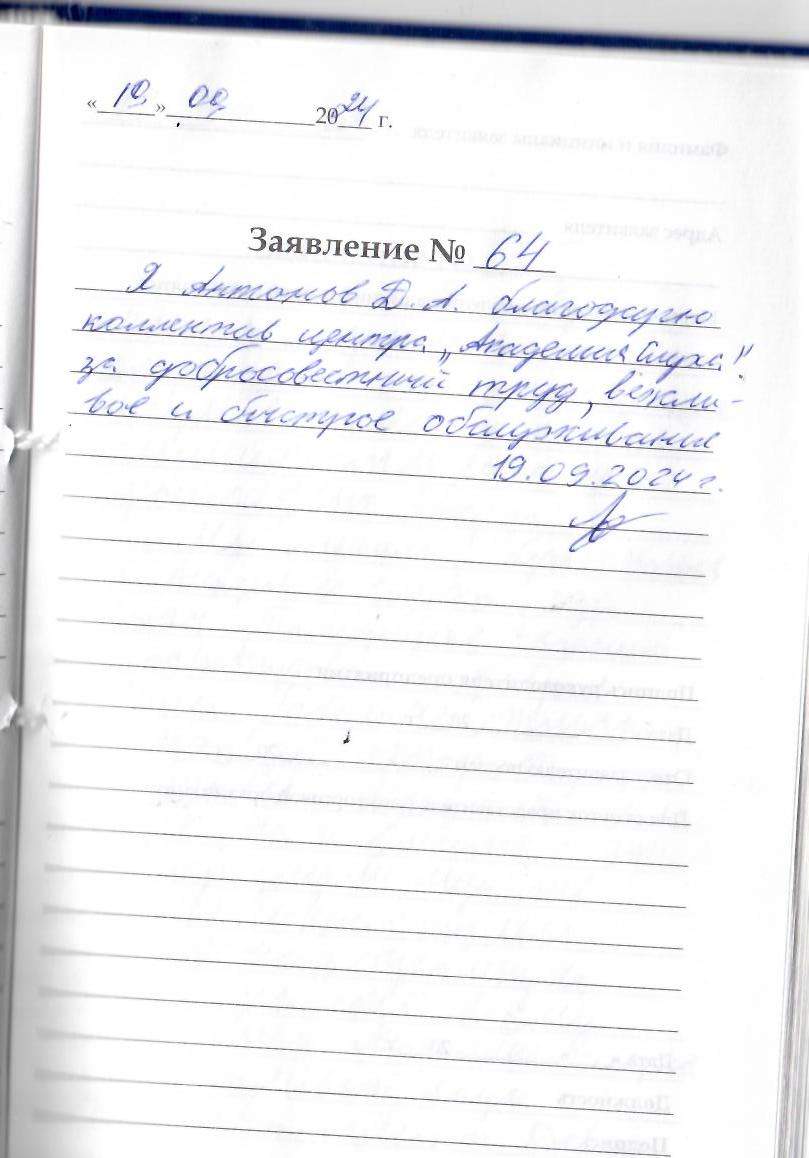 « 19 » 09 2024 г.
Заявление № 64
Я Антонов Д. А. благодарю
коллектив центра „Академия Слуха"
за добросовестный труд, вежли-
вое и быстрое обслуживание
19.09.2024 г.